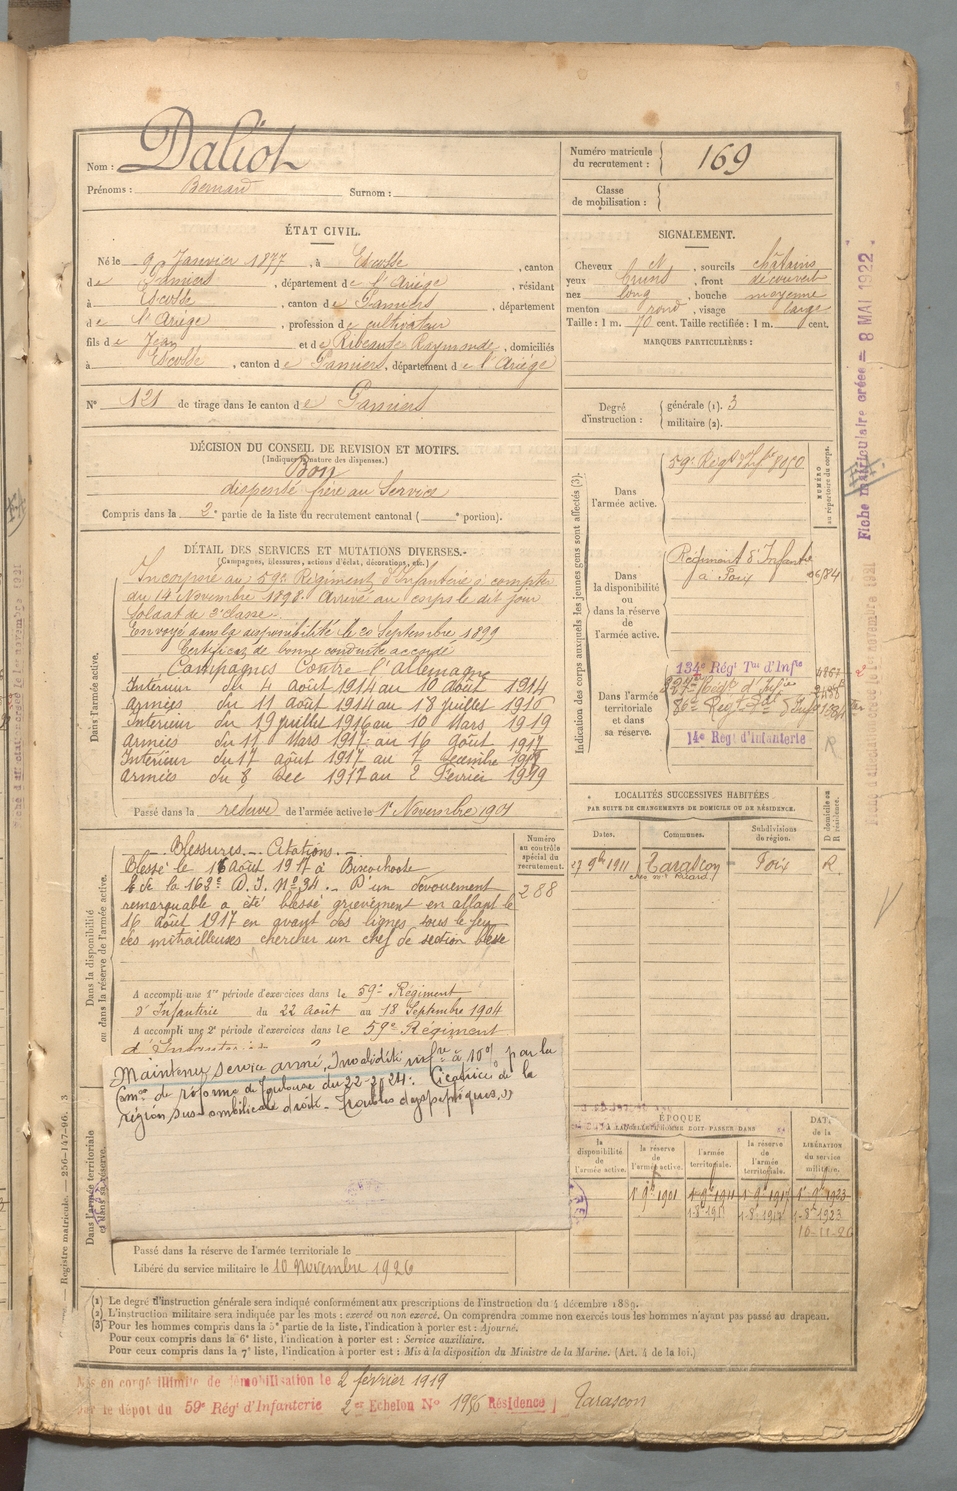 Nom : Daliot
Prénoms : Bernard Surnom :
Numéro matricule du recrutement : 169
Classe de mobilisation :
ÉTAT CIVIL.
Né le 9 Janvier 1877, à Escosse, canton
de Pamiers, département de l'Ariége, résidant
à Escosse, canton de Pamiers, département
de l'Ariége, profession de cultivateur
fils de Jean et de Ribaute Raymonde, domiciliés
à Escosse, canton de Pamiers, département de l'Ariége
N° 121 de tirage dans le canton de Pamiers
SIGNALEMENT.
Cheveux N, sourcils châtains
yeux bruns, front découvert
nez long, bouche moyenne
menton rond, visage large
Taille : 1 m. 70 cent. Taille rectifiée : 1 m. cent.
MARQUES PARTICULIÈRES :
Degré d'instruction : générale (1). 3
militaire (2).
DÉCISION DU CONSEIL DE REVISION ET MOTIFS.
(Indiquer la nature des dispenses.)
Bon
dispensé frère au Service
Compris dans la 2e partie de la liste du recrutement cantonal ( e portion).
DÉTAIL DES SERVICES ET MUTATIONS DIVERSES.
(Campagnes, blessures, actions d'éclat, décorations, etc.)
Dans l'armée active.
Incorporé au 59e Régiment d'Infanterie à compter
du 14 Novembre 1898. Arrivé au corps le dit jour
soldat de 2e classe.
Envoyé dans la disponibilité le 20 Septembre 1899
Certificat de bonne conduite accordé
Campagnes Contre l'Allemagne
Intérieur du 4 Août 1914 au 10 Août 1914
Armées du 11 Août 1914 au 18 juillet 1916
Intérieur du 19 juillet 1916 au 10 Mars 1919
Armées du 11 Mars 1917 au 16 Août 1917
Intérieur du 17 août 1917 au 7 Décembre 1917
Armées du 8 Dec 1917 au 2 Février 1919
Passé dans la réserve de l'armée active le 1er Novembre 1901
Indication des corps auxquels les jeunes gens sont affectés (3).
NUMÉRO au répertoire du corps.
Dans l'armée active.
59e Régt d'Infie 8050
Dans la disponibilité ou dans la réserve de l'armée active.
Régiment d'Infanterie
à Foix
Dans l'armée territoriale et dans sa réserve.
134e Régt Tal d'Infie
14e Régt d'Infanterie R
LOCALITÉS SUCCESSIVES HABITÉES
PAR SUITE DE CHANGEMENTS DE DOMICILE OU DE RÉSIDENCE.
D domicile ou R résidence.
Dates. Communes. Subdivisions de région.
27 9bre 1911 Tarascon Foix R
Dans la disponibilité ou dans la réserve de l'armée active.
Blessures - Citations.
Numéro au contrôle spécial du recrutement.
288
Blessé le 16 Août 1917 à Bixschoote
de la 162e D.I. N° 34. D'un dévouement
remarquable a été blessé grièvement en allant le
16 Août 1917 en avant des lignes sous le feu
des mitrailleuses chercher un chef de section blessé
A accompli une 1re période d'exercices dans le 59e Régiment
d'Infanterie du 22 août au 18 Septembre 1904
A accompli une 2e période d'exercices dans le 59e Régiment
Maintenu service armé, Invalidité infre à 10% par la
Comon de réforme de Toulouse du 22-2-24: Cicatrice de la
région sus-ombilicale droite. Troubles dyspeptiques.
Dans l'armée territoriale et dans sa réserve.
ÉPOQUE
À LAQUELLE L'HOMME DOIT PASSER DANS
la disponibilité de l'armée active.
la réserve de l'armée active.
l'armée territoriale.
la réserve de l'armée territoriale.
DATE de la LIBÉRATION du service militaire.
1er 9bre 1901 1er 9bre 1911 1er 9bre 1917 1er 9bre 1923
1-8-1911 1-8-1917 1-8-1923
10-11-26
Passé dans la réserve de l'armée territoriale le
Libéré du service militaire le 10 novembre 1926
(1) Le degré d'instruction générale sera indiqué conformément aux prescriptions de l'instruction du 4 décembre 1889.
(2) L'instruction militaire sera indiquée par les mots : exercé ou non exercé. On comprendra comme non exercés tous les hommes n'ayant pas passé au drapeau.
(3) Pour les hommes compris dans la 5e partie de la liste, l'indication à porter est : Ajourné.
Pour ceux compris dans la 6e liste, l'indication à porter est : Service auxiliaire.
Pour ceux compris dans la 7e liste, l'indication à porter est : Mis à la disposition du Ministre de la Marine. (Art. 4 de la loi.)
Mis en congé illimité de démobilisation le 2 février 1919
par le dépot du 59e Régt d'Infanterie 2er Echelon N° Résidence Tarascon
Registre matricule. — 256-147-96. 3
Fiche matriculaire créée = 8 MAI 1922